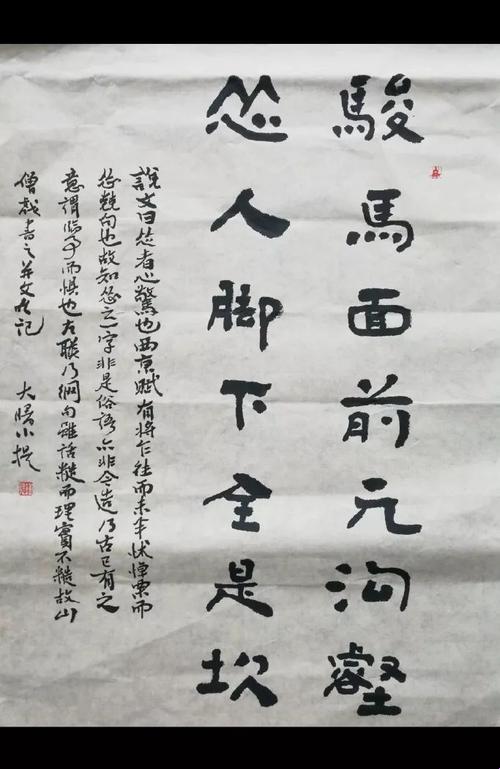 駿馬面前元沟壑
怂人脚下全是坎
說文曰怂者心驚也西京賦有將乍往而未半怵悼栗而
怂兢向也故知怂之一字非是俗語亦非今造乃古已有之
意謂臨事而懼也右聯乃網句雖話糙而理實不糙故山
僧戲書之并文以記